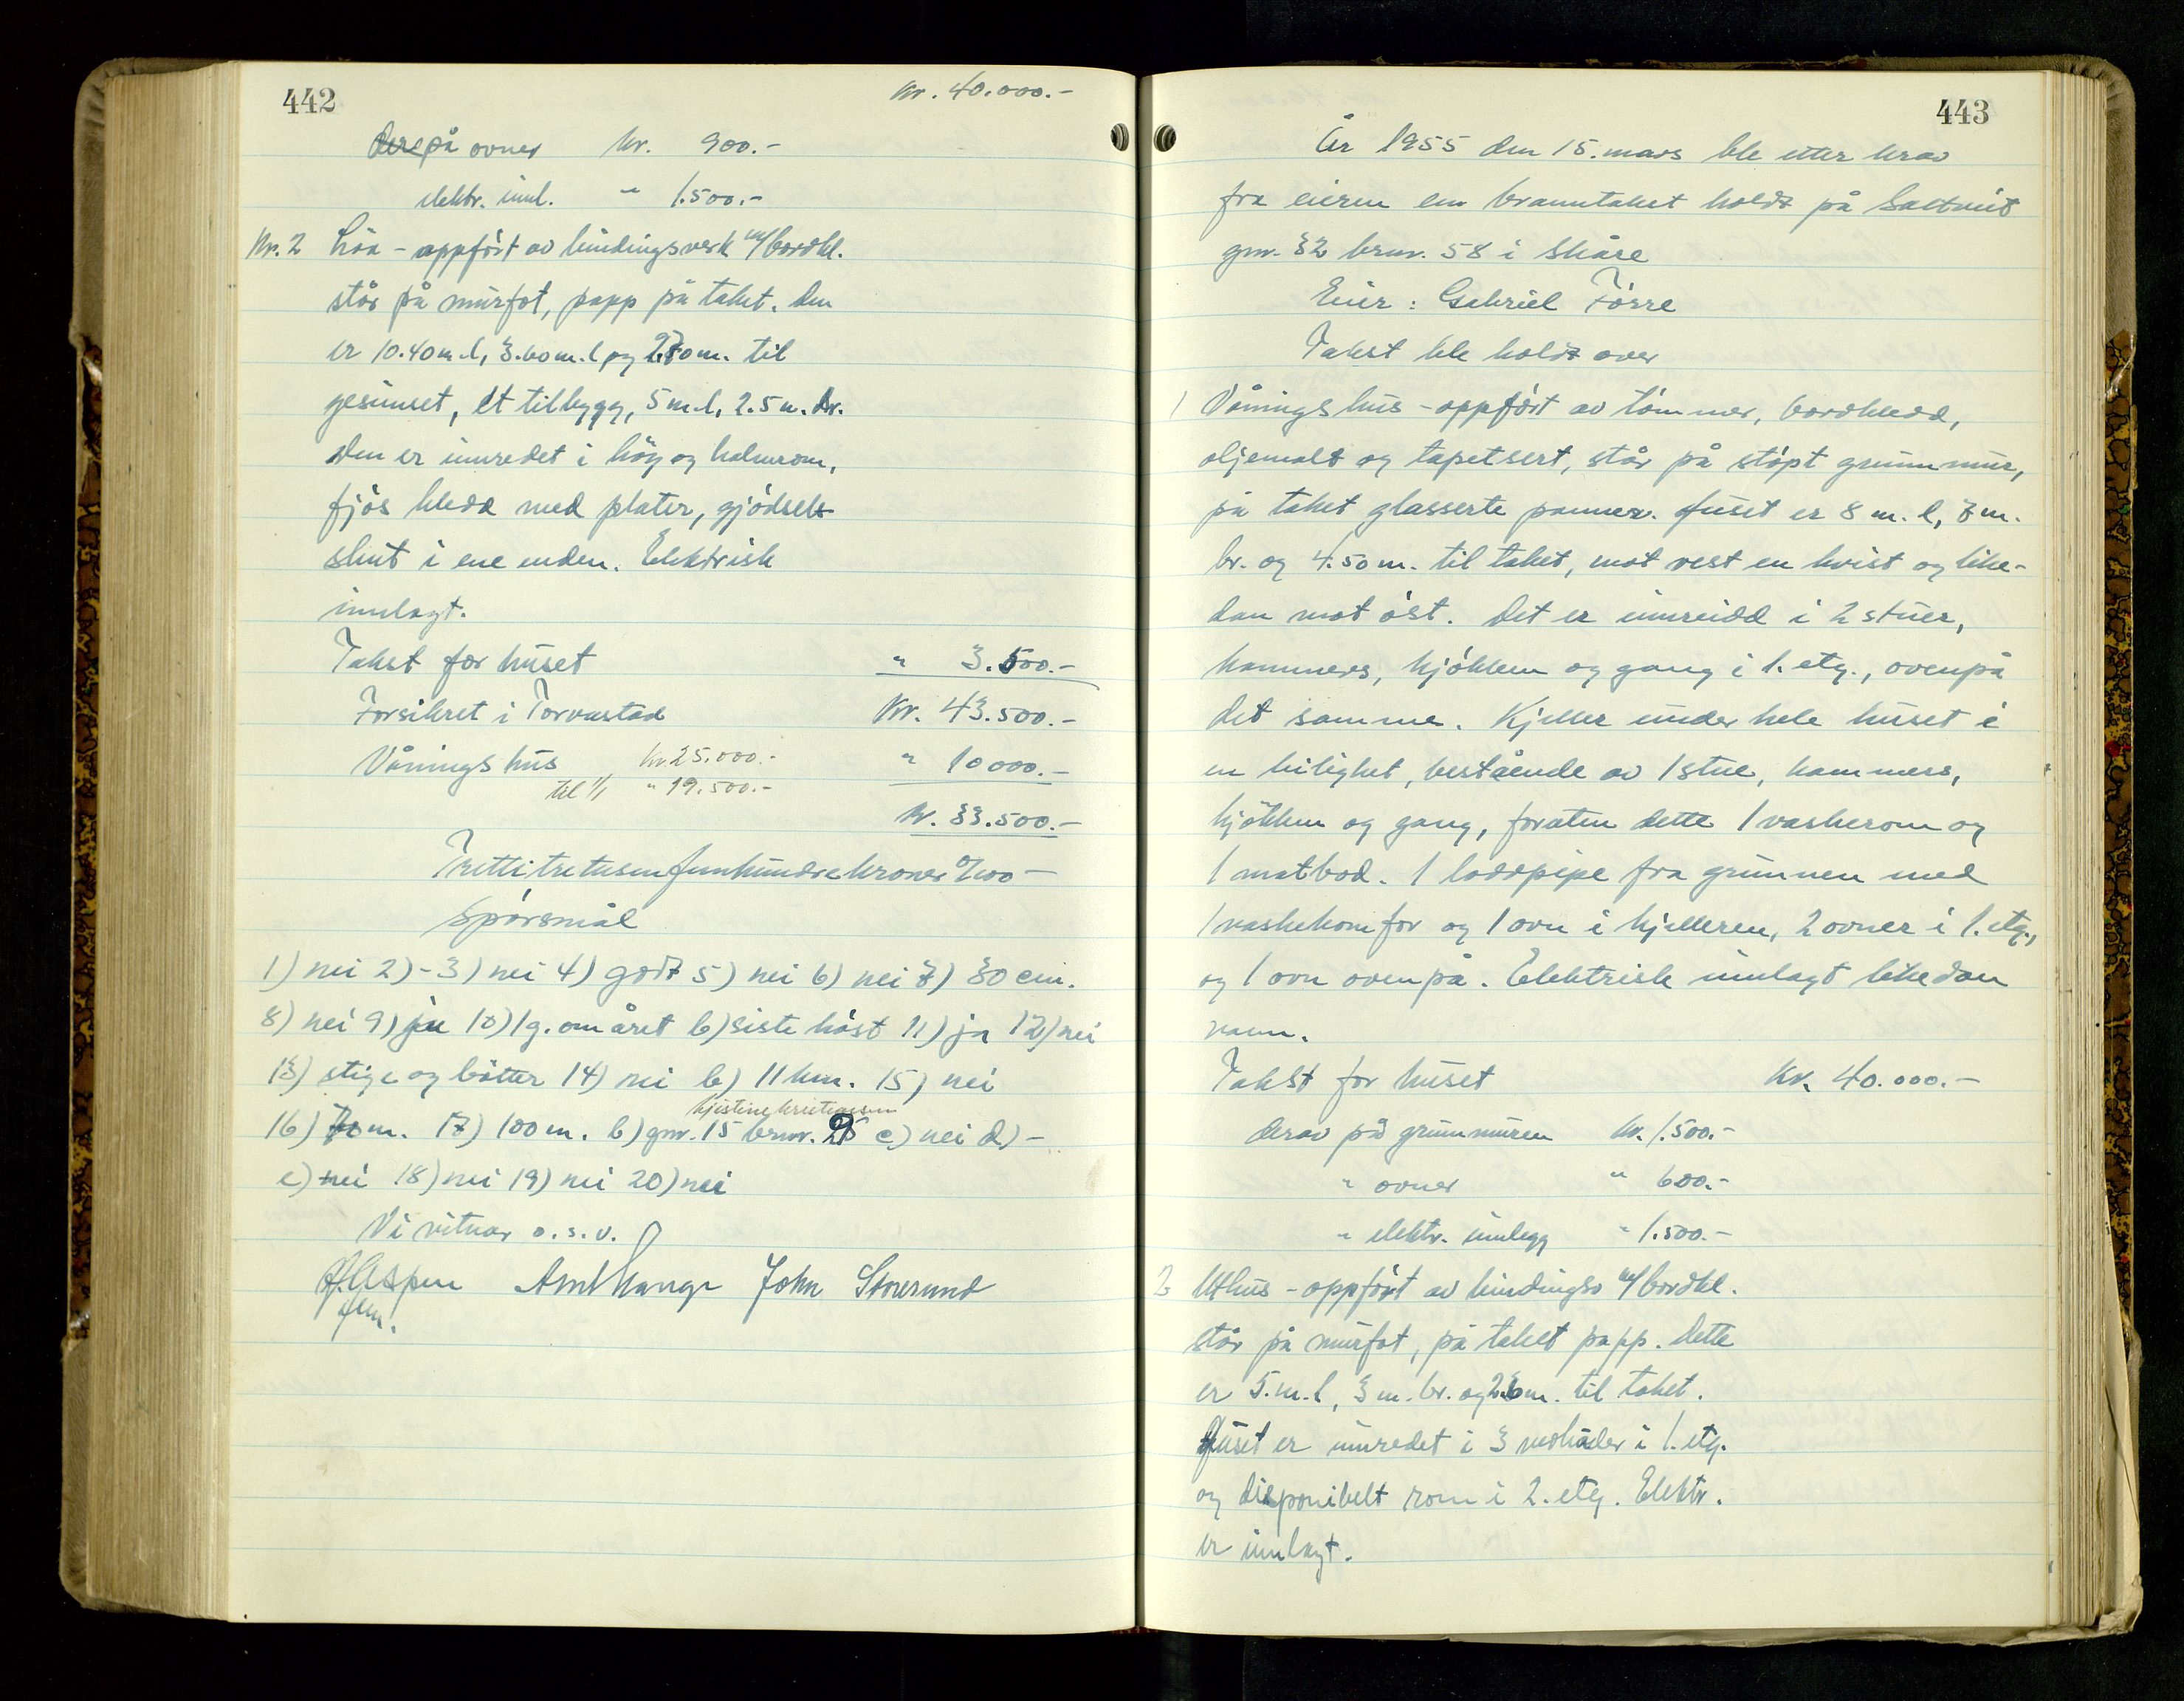 442
Kr. 40.000.-
på ovner kr. 900.-
elektr. innl. " 1.500.-
Nr. 2 Löa - oppfört av bindingsverk m/bordkl.
står på murfot, papp på taket. Den
er 10.40 m. l, 3.60 m. l og 2.70 m. til
gesimset, et tilbygg, 5 m. l, 2.5 m. br.
Den er innredet i höy og halmrom,
fjös kledd med plater, gjödsel-
skut i ene enden. Elektrisk
innlagt.
Takst for huset " 3.500.-
Forsikret i Torvastad Kr. 43.500.-
Våningshus kr 25.000.- " 10000.-
til 1/1 " 19.500.-
kr. 33.500.-
Trettitretusenfemhundrekroner 0/100 -
Spörsmål
1) nei 2) - 3) nei 4) godt 5) nei 6) nei 7) 30 cm.
8) nei 9) ja 10) 1 g. om året b) siste höst 11) ja 12) nei
13) stige og bötter 14) nei b) 11 km. 15) nei
kjistine kristiansen
16) m. 17) 100 m. b) gnr. 15 brnr. 25 c) nei d) -
e) nei 18) nei 19) nei 20) nei
Vi vitnar o.s.v.
Aspen Amt Hauge John Storesund
fem.
443
År 1955 den 15. mars ble etter krav
fra eieren en branntakst holdt på Saltveit
gnr. 32 brnr. 58 i Skåre
Eier : Gabriel Förre
Takst ble holdt over
1 Våningshus - oppfört av tömmer, bordkledd,
oljemalt og tapetsert, står på stöpt grunnmur,
på taket glasserte panner. Huset er 8 m. l, 7 m.
br. og 4.50 m. til taket, mot vest en kvist og like-
dan mot öst. Det er innreidd i 2 stuer,
kammers, kjökken og gang i 1. etg., ovenpå
det samme. Kjeller under hele huset i
en leilighet, bestående av 1 stue, kammers,
kjökken og gang, foruten dette 1 vaskerom og
1 matbod. 1 loddpipe fra grunnen med
1 vaskekomfor og 1 ovn i kjelleren, 2 ovner i 1. etg.,
og 1 ovn ovenpå. Elektrisk innlagt likedan
vann.
Takst for huset Kr. 40.000.-
derav på grunnmuren kr. 1.500.-
" ovner " 600.-
" elektr. innlegg " 1.500.-
2 Uthus - oppfört av bindingsv m/bordkl.
står på murfot, på taket papp. Dette
er 5. m. l, 3 m. br. og 2.6 m. til taket.
Huset er innredet i 3 vedboder i 1. etg.
og disponibelt rom i 2. etg. Elektr.
er innlagt.